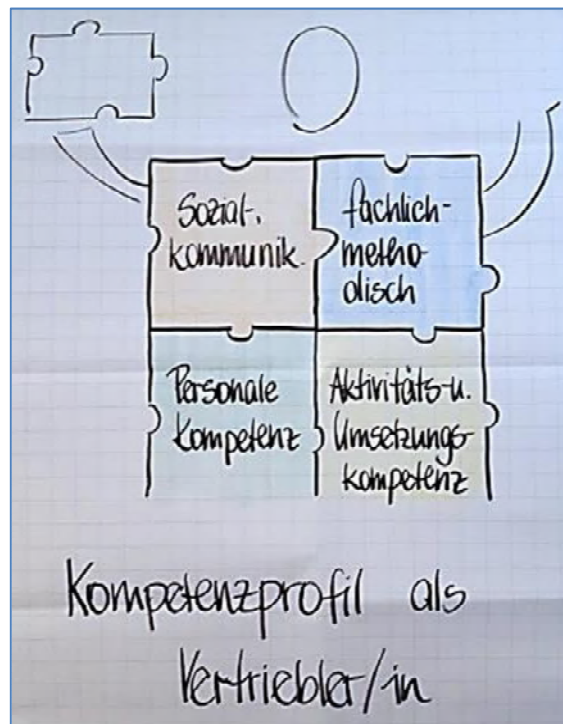 Sozial-.
kommunik.
fachlich-
metho-
disch
Personale
Kompetenz
Aktivitäts-u.
Umsetzungs-
kompetenz
Kompetenzprofil als
Vertriebler/in